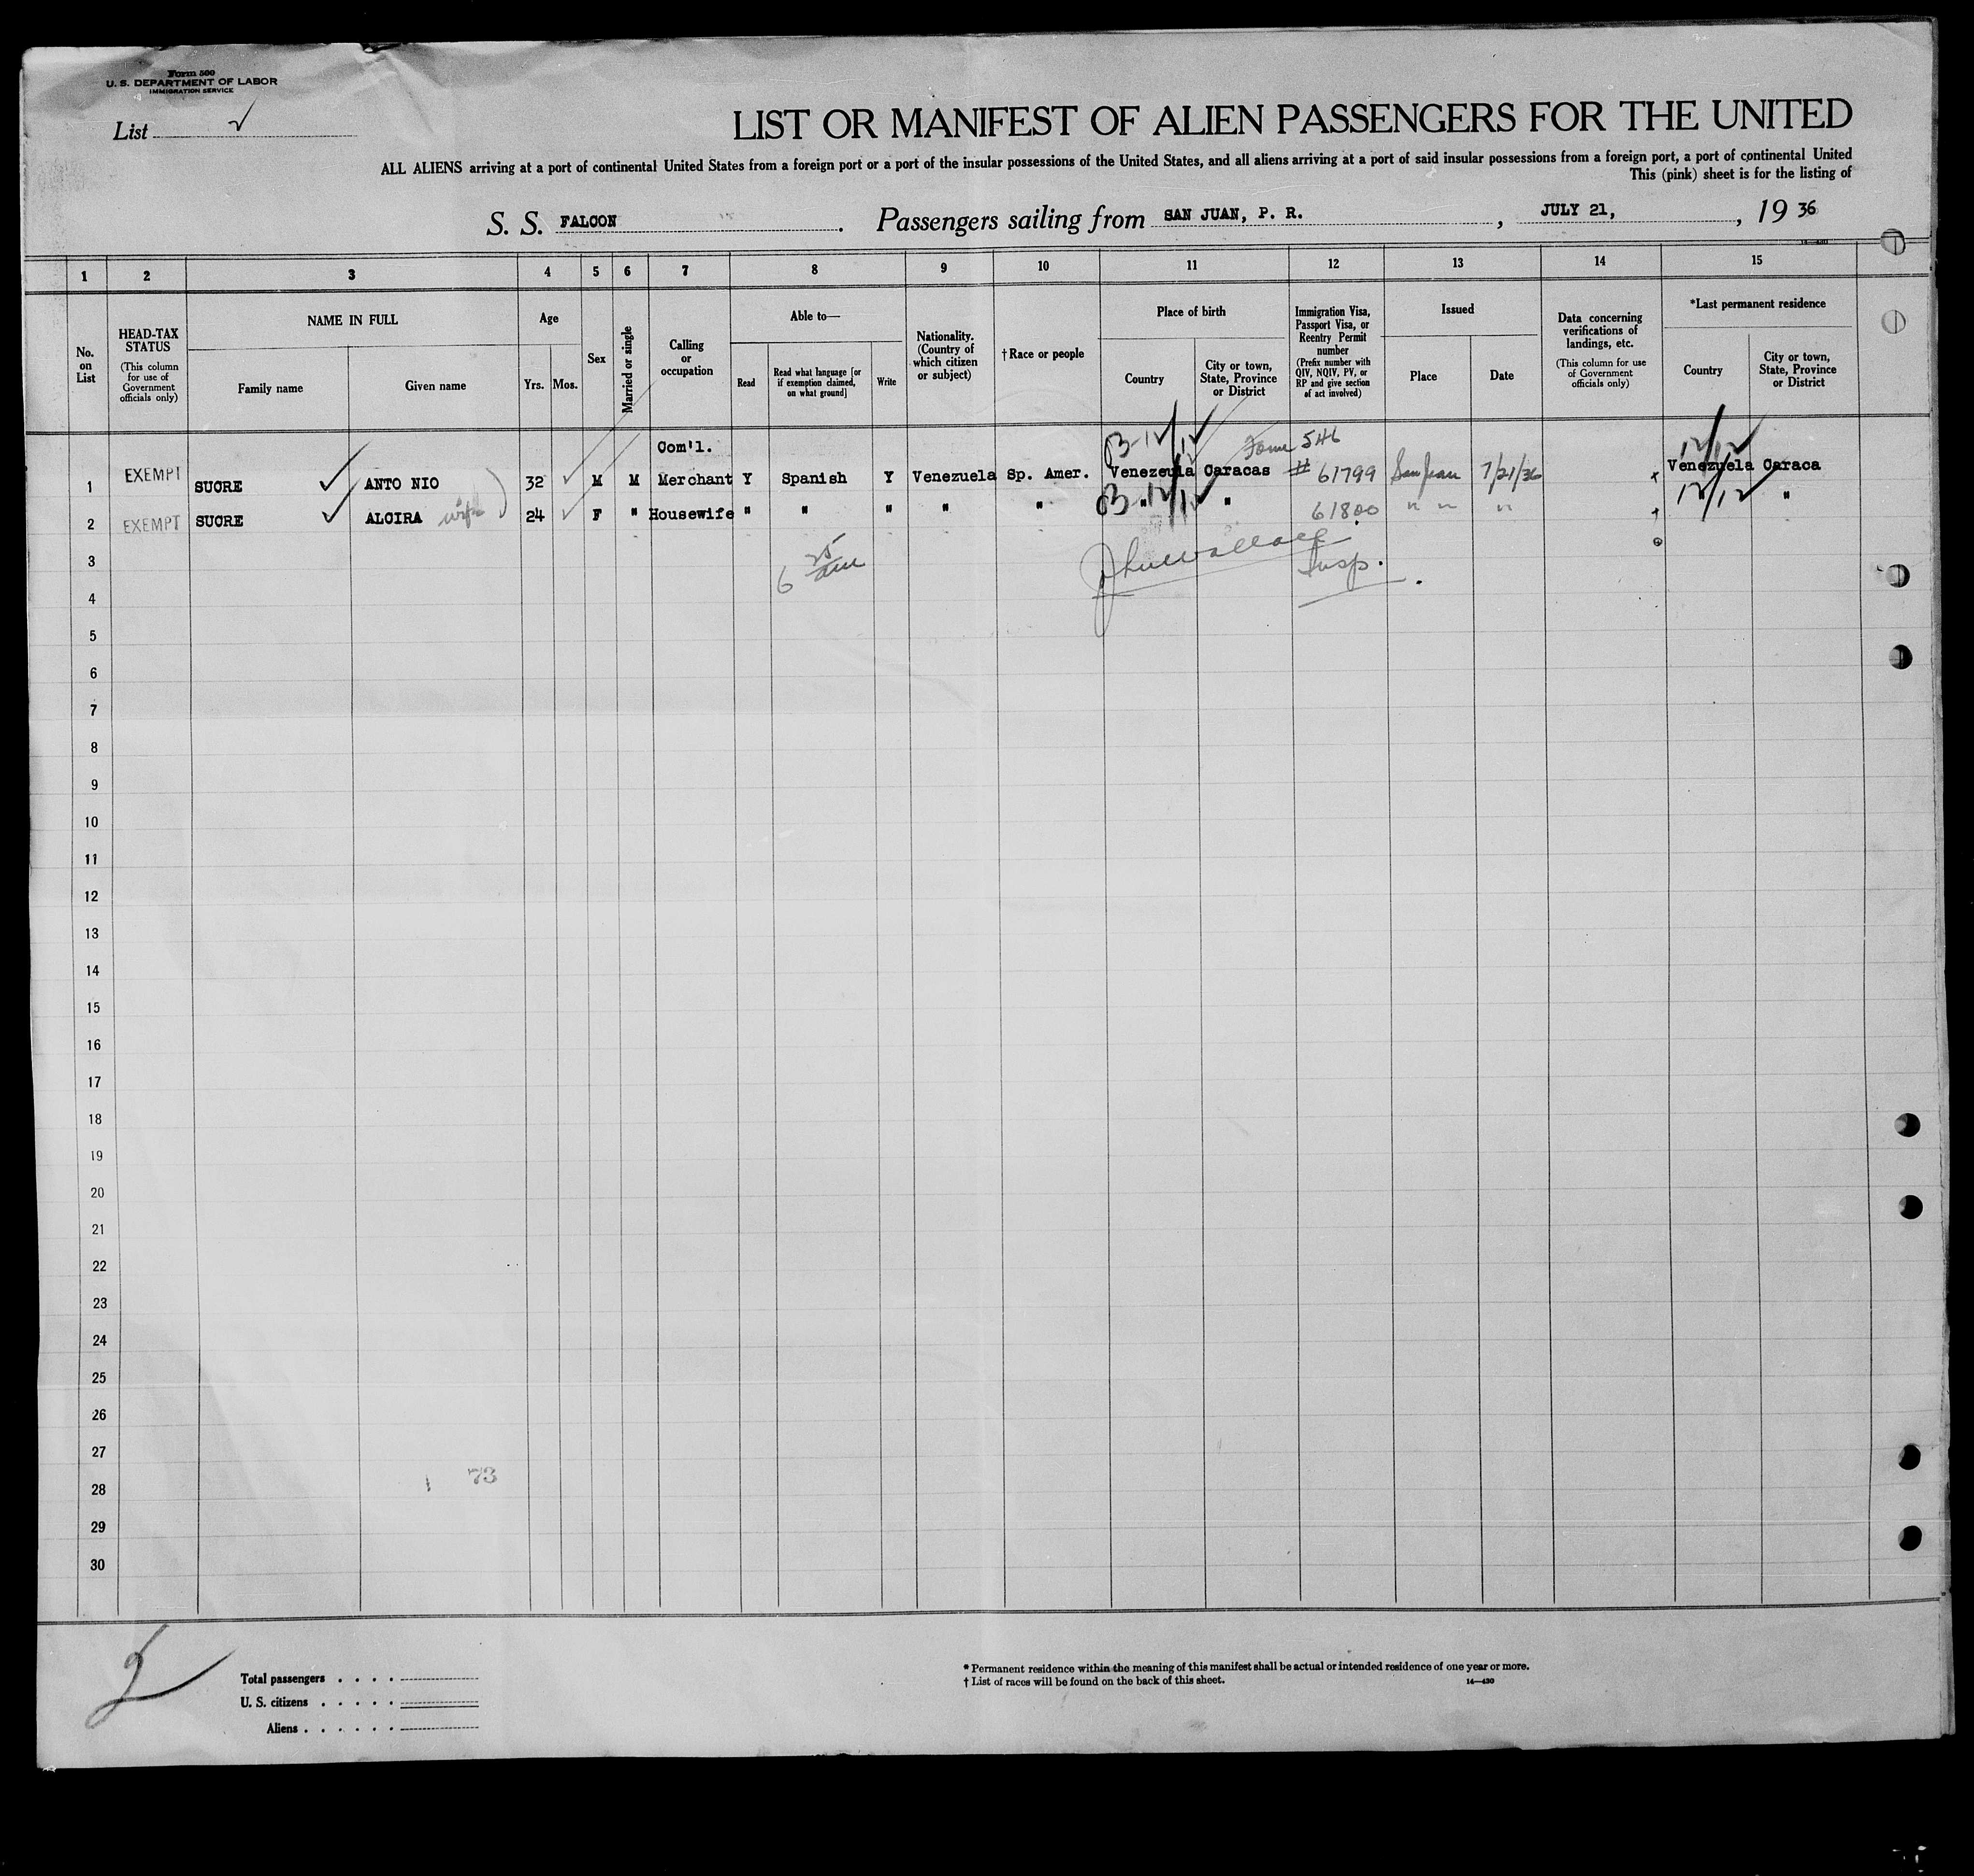 Form 500
U. S. DEPARTMENT OF LABOR
IMMIGRATION SERVICE
List
LIST OR MANIFEST OF ALIEN PASSENGERS FOR THE UNITED
ALL ALIENS arriving at a port of continental United States from a foreign port or a port of the insular possessions of the United States, and all aliens arriving at a port of said insular possessions from a foreign port, a port of continental United
This (pink) sheet is for the listing of
S. S. FALCON . Passengers sailing from SAN JUAN, P. R. , JULY 21, , 19 36
1 2 3 4 5 6 7 8 9 10 11 12 13 14 15
No. on List
HEAD-TAX STATUS
(This column for use of Government officials only)
NAME IN FULL
Family name
Given name
Age
Yrs.
Mos.
Sex
Married or single
Calling or occupation
Able to—
Read
Read what language [or if exemption claimed, on what ground]
Write
Nationality. (Country of which citizen or subject)
†Race or people
Place of birth
Country
City or town, State, Province or District
Immigration Visa, Passport Visa, or Reentry Permit number
(Prefix number with QIV, NQIV, PV, or RP and give section of act involved)
Issued
Place
Date
Data concerning verifications of landings, etc.
(This column for use of Government officials only)
*Last permanent residence
Country
City or town, State, Province or District
Com'l. Form 546
1 EXEMPT SUCRE ANTO NIO 32 M M Merchant Y Spanish Y Venezuela Sp. Amer. Venezeula Caracas # 61799 San Juan 7/21/36 Venezuela Caraca
2 EXEMPT SUCRE ALCIRA wife 24 F " Housewife " " " " " " " 61800 " " " "
3 6 25 am Insp.
4
5
6
7
8
9
10
11
12
13
14
15
16
17
18
19
20
21
22
23
24
25
26
27
28 73
29
30
2
Total passengers
U. S. citizens
Aliens
* Permanent residence within the meaning of this manifest shall be actual or intended residence of one year or more.
† List of races will be found on the back of this sheet. 14—430